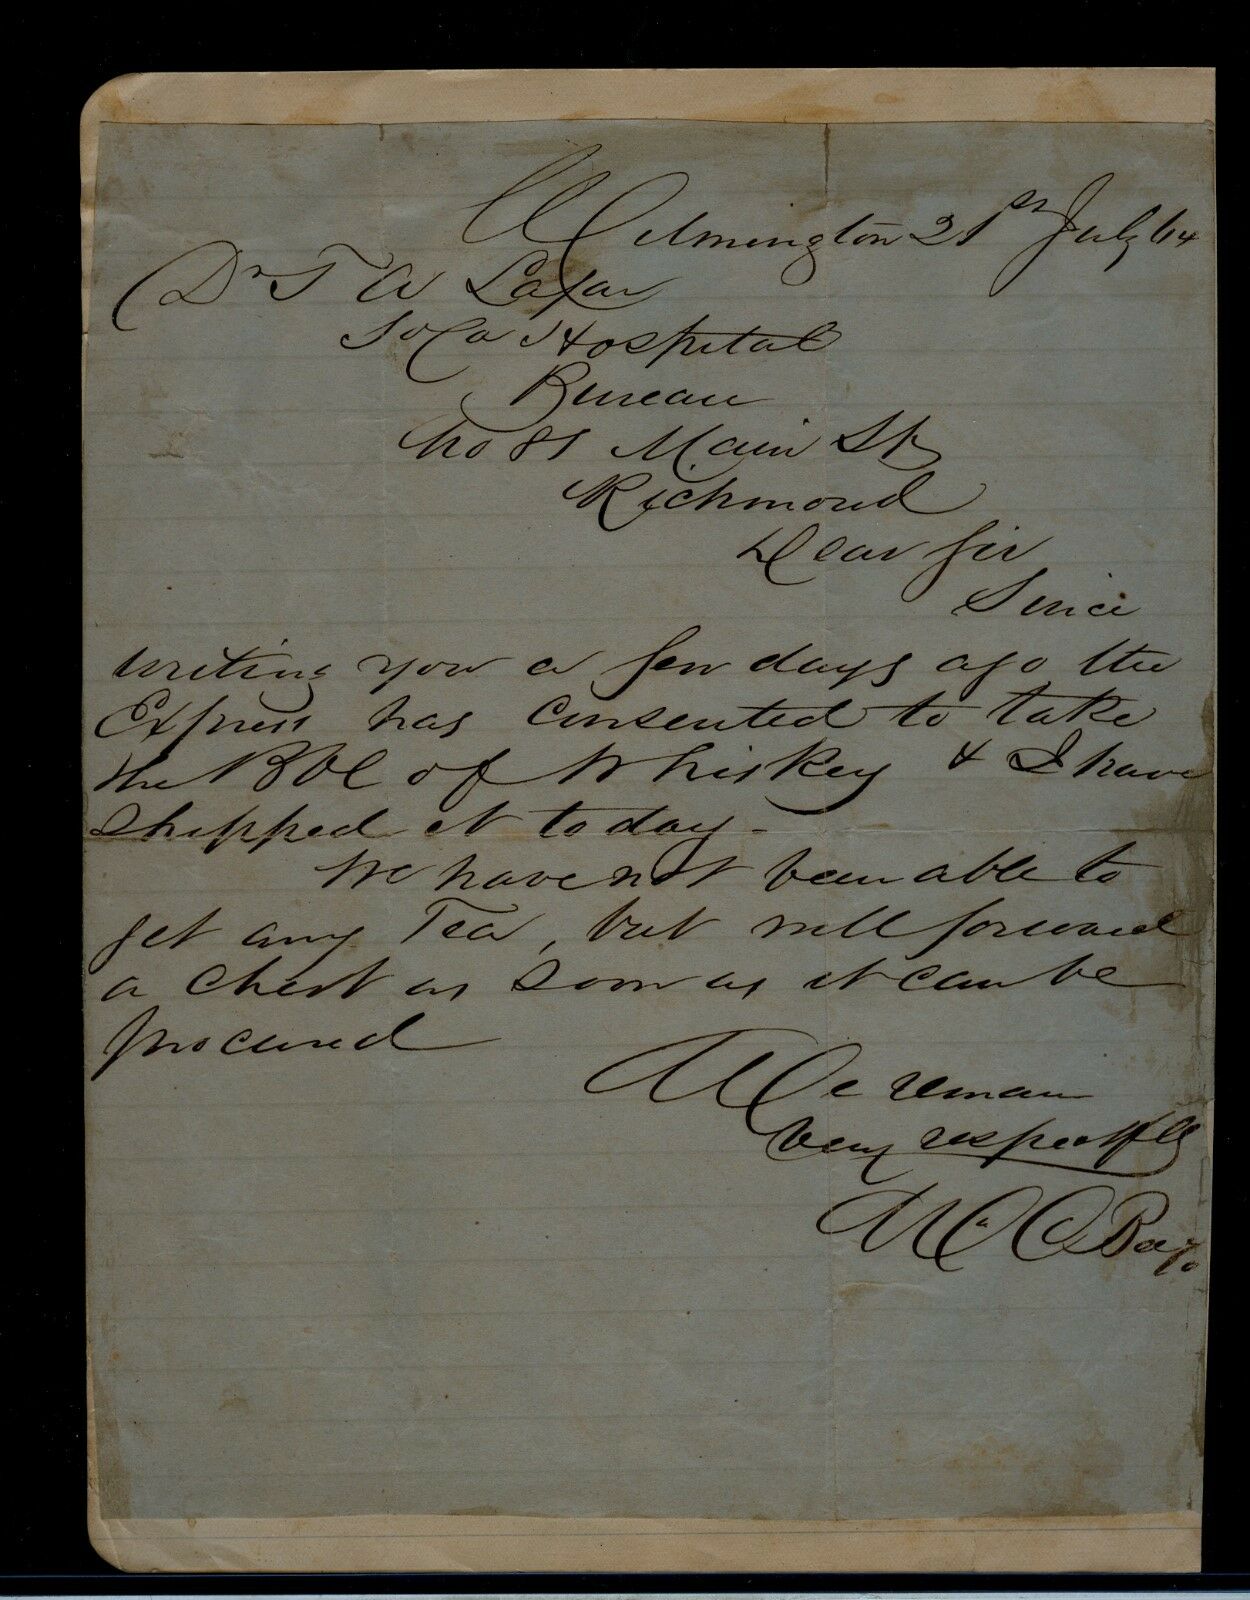 Wilmington 21st July 64
Dr T A Lafar
So Ca Hospital
Bureau
No 81 Main St
Richmond
Dear Sir
Since
writing you a few days ago the
Express has consented to take
the Bbl of Whiskey & I have
shipped it today -
We have not been able to
get any Tea, but will forward
a Chest as soon as it can be
procured
We reman
very respectflly